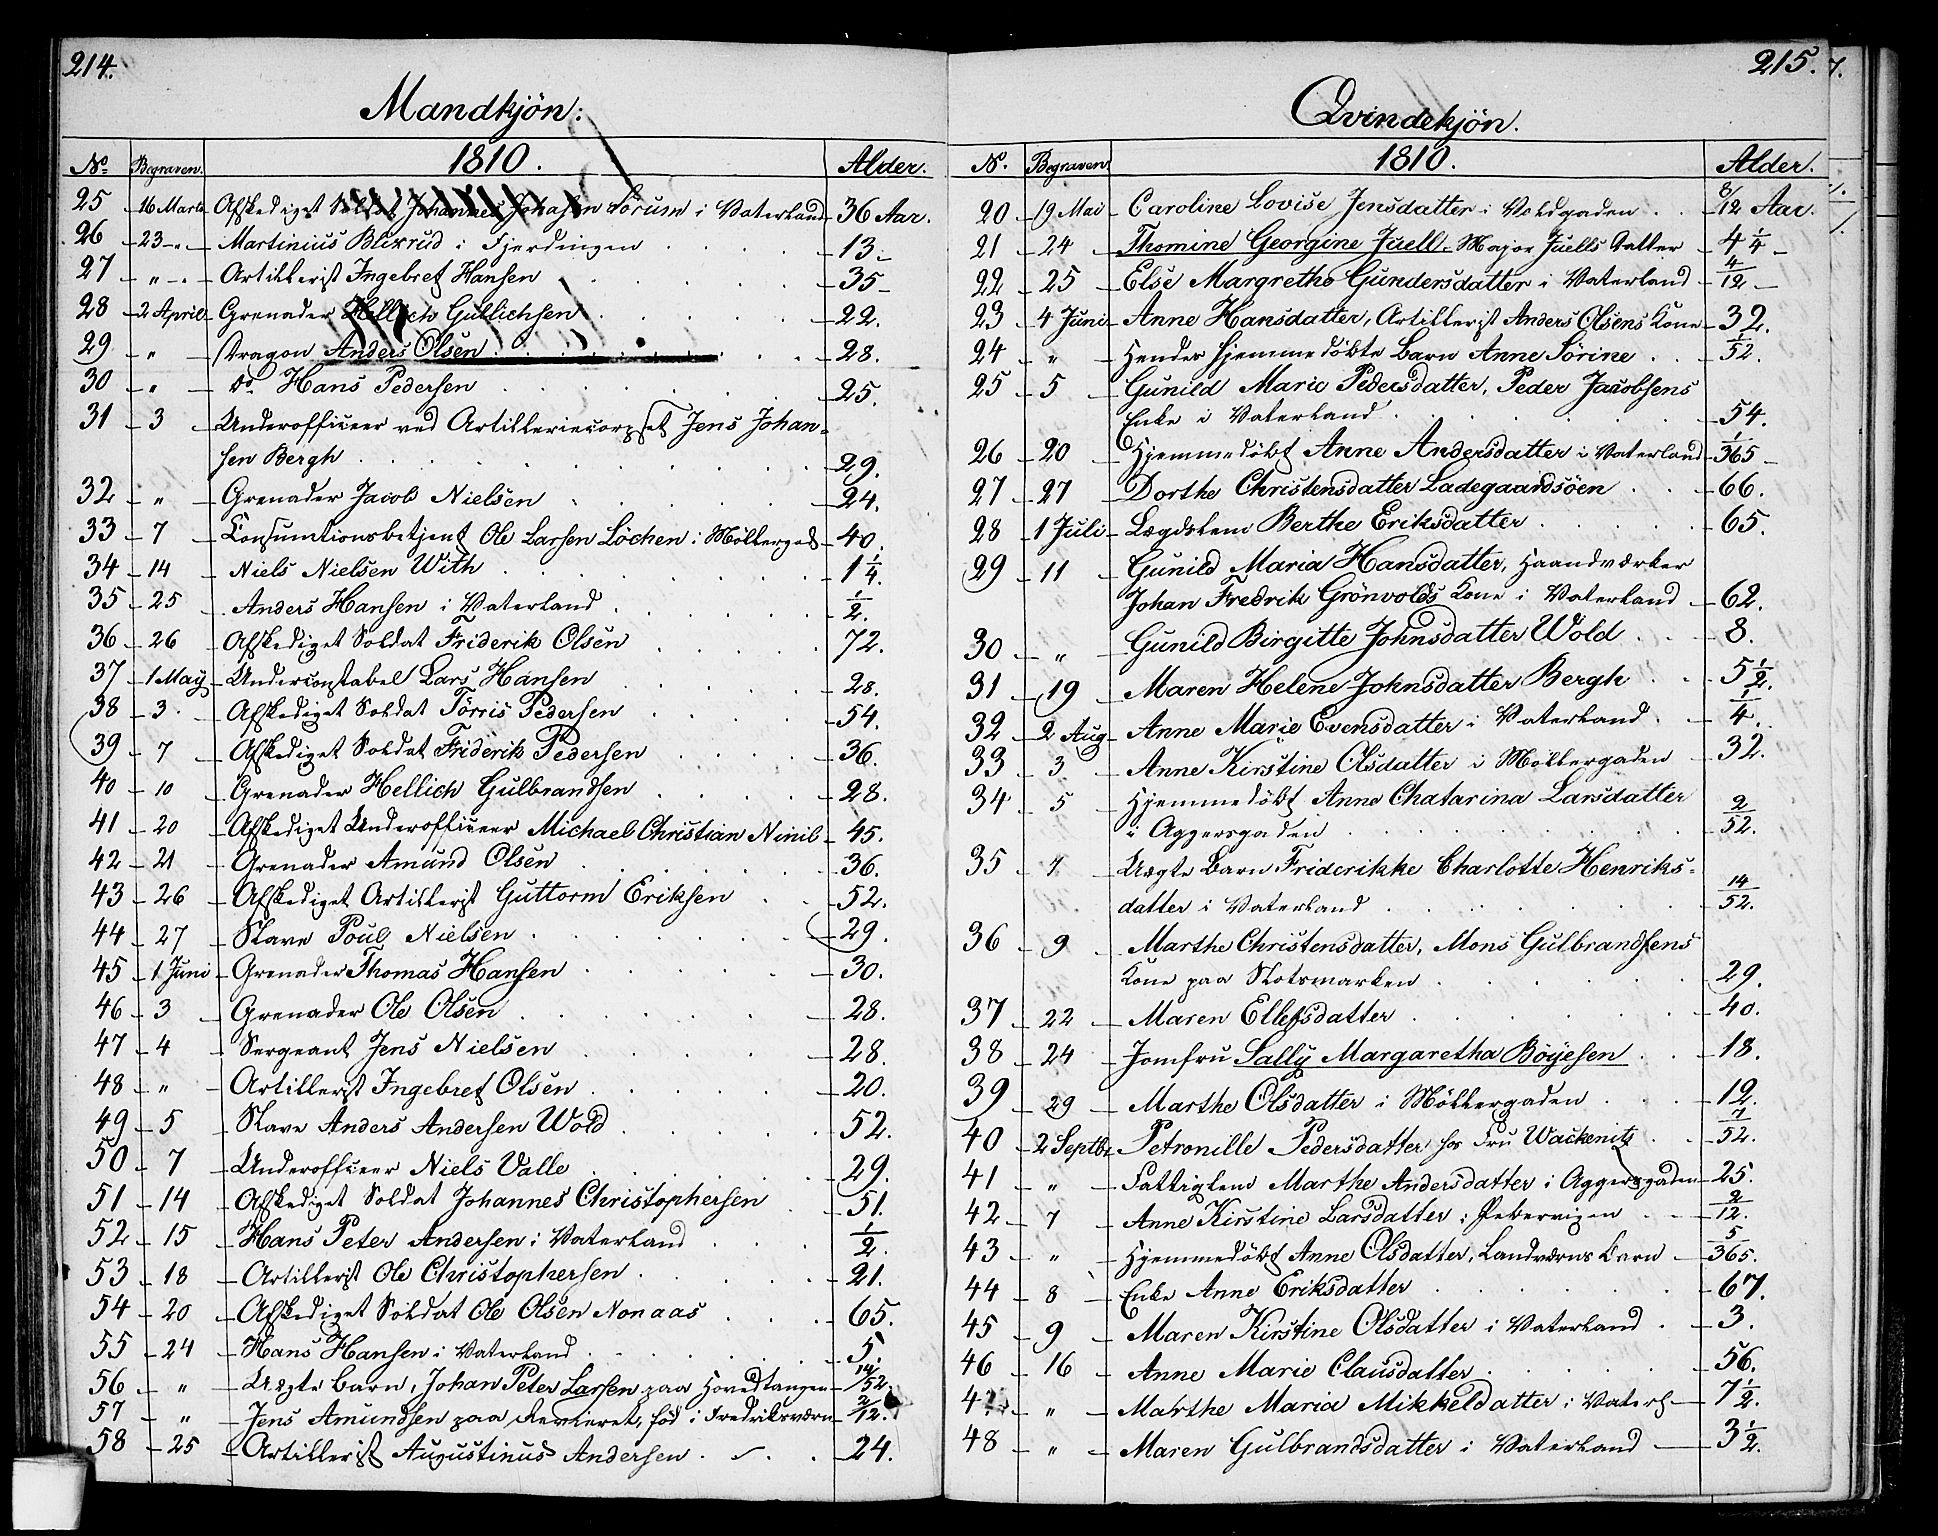 214.
Mandkjön:
No. Begraven. 1810. Alder.
25 16 Marts Afskediget Soldat Johannes Johasen Sörum i Vaterland 36 Aar.
26 23 - Martinius Blixrud i Fjerdingen 13.
27 " - Artillerist Ingebret Hansen 35
28 2 April Grenader Hellich Gullichsen 22.
29 " Dragon Anders Olsen 28.
30 " do Hans Pedersen 25.
31 3 Underofficeer ved Artilleriecorpset Jens Johan-
sen Bergh 29.
32 " Grenader Jacob Nielsen 24.
33 7 Consumtionsbetjent Ole Larsen Löchen i Möllergad 40.
34 14 Niels Nielsen With 1 1/4.
35 25 Anders Hansen i Vaterland 1/2.
36 26 Afskediget Soldat Friderik Olsen 72.
37 1 May Underconstabel Lars Hansen 28.
38 3. Afskediget Soldat Törris Pedersen 54.
39 7 Afskediget Soldat Friderik Pedersen 36.
40 10 Grenader Hellich Gulbrandsen 28.
41 20 Afskediget Underofficeer Michael Christian Nimib 45.
42 21 Grenader Amund Olsen 36.
43 26 Afskediget Artillerist Guttorm Eriksen 52.
44 27 Slave Poul Nielsen 29.
45 1 Juni Grenader Thomas Hansen 30.
46 3 Grenader Ole Olsen 28.
47 4 Sergeant Jens Nielsen 28.
48 " Artillerist Ingebret Olsen 20.
49 5 Slave Anders Andersen Wold 52.
50 7 Underofficeer Niels Valle 29.
51 14 Afskediget Soldat Johannes Christophersen 51.
52 15 Hans Peter Andersen i Vaterland 1/2.
53 18 Artillerist Ole Christophersen 21.
54 20 Afskediget Soldat Ole Olsen Nonaas 65.
55 24 Hans Hansen i Vaterland 5.
56 " Uægte Barn, Johan Peter Larsen paa Hovedtangen 14/52.
57 " Jens Amundsen paa Revieret, fød i Fredriksværn 2/12.
58 25 Artillerist Augustinus Andersen 24.
215.
Qvindekjön.
No. Begraven. 1810. Alder.
20 19 Mai Caroline Lovise Jensdatter i Voldgaden 8/12 Aar.
21 24 Thomine Georgine Juell. Major Juells Datter 4 1/4
22 25 Else Margrethe Gundersdatter i Vaterland 4/12
23 4 Juni Anne Hansdatter, Artillerist Anders Olsens Kone 32.
24 " Hendes hjemmedöbte Barn Anne Sörine 1/52.
25 5 Gunild Marie Pedersdatter, Peder Jacobsens
Enke i Vaterland 54.
26 20 Hjemmedöbt Anne Andersdatter i Vaterland 1/365
27 27 Dorthe Christensdatter Ladegaardsöen 66.
28 1 Juli Lægdslem Berthe Eriksdatter 65.
29 11 Gunild Maria Hansdatter, Haandværker
Johan Fredrik Grönvolds Kone i Vaterland 62.
30 " Gunild Birgitte Johnsdatter Wold 8.
31 19 Maren Helene Johnsdatter Bergh 5 1/2.
32 2 Aug Anne Marie Evensdatter i Vaterland 1/4.
33 3 Anne Kirstine Olsdatter i Möllergaden 32.
34 5 Hjemmedöbt Anne Chatarina Larsdatter
i Aggersgaden 2/52.
35 7 Uægte Barn Friderikke Charlotte Henriks-
datter i Vaterland 14/52.
36 9 Marthe Christensdatter, Mons Gulbrandsens
Kone paa Slotsmarken 29.
37 22 Maren Ellefsdatter 40.
38 24 Jomfru Sally Margaretha Böyesen 18.
39 29 Marthe Olsdatter i Möllergaden 12.
40 2 Septbr Petronille Pedersdatter hos Fru Wackenitz 7/52.
41 " Fattiglem Marthe Andersdatter i Aggersgaden 25.
42 7 Anne Kirstine Larsdatter i Pebervigen 2/12.
43 " Hjemmedöbt Anne Olsdatter, Landværns Barn 5/365.
44 8 Enke Anne Eriksdatter 67.
45 9 Maren Kirstine Olsdatter i Vaterland 3.
46 16 Anne Marie Clausdatter 56.
47 " Marthe Maria Mikkeldatter i Vaterl 7 1/2.
48 " Maren Gulbrandsdatter i Vaterland 3 1/2.